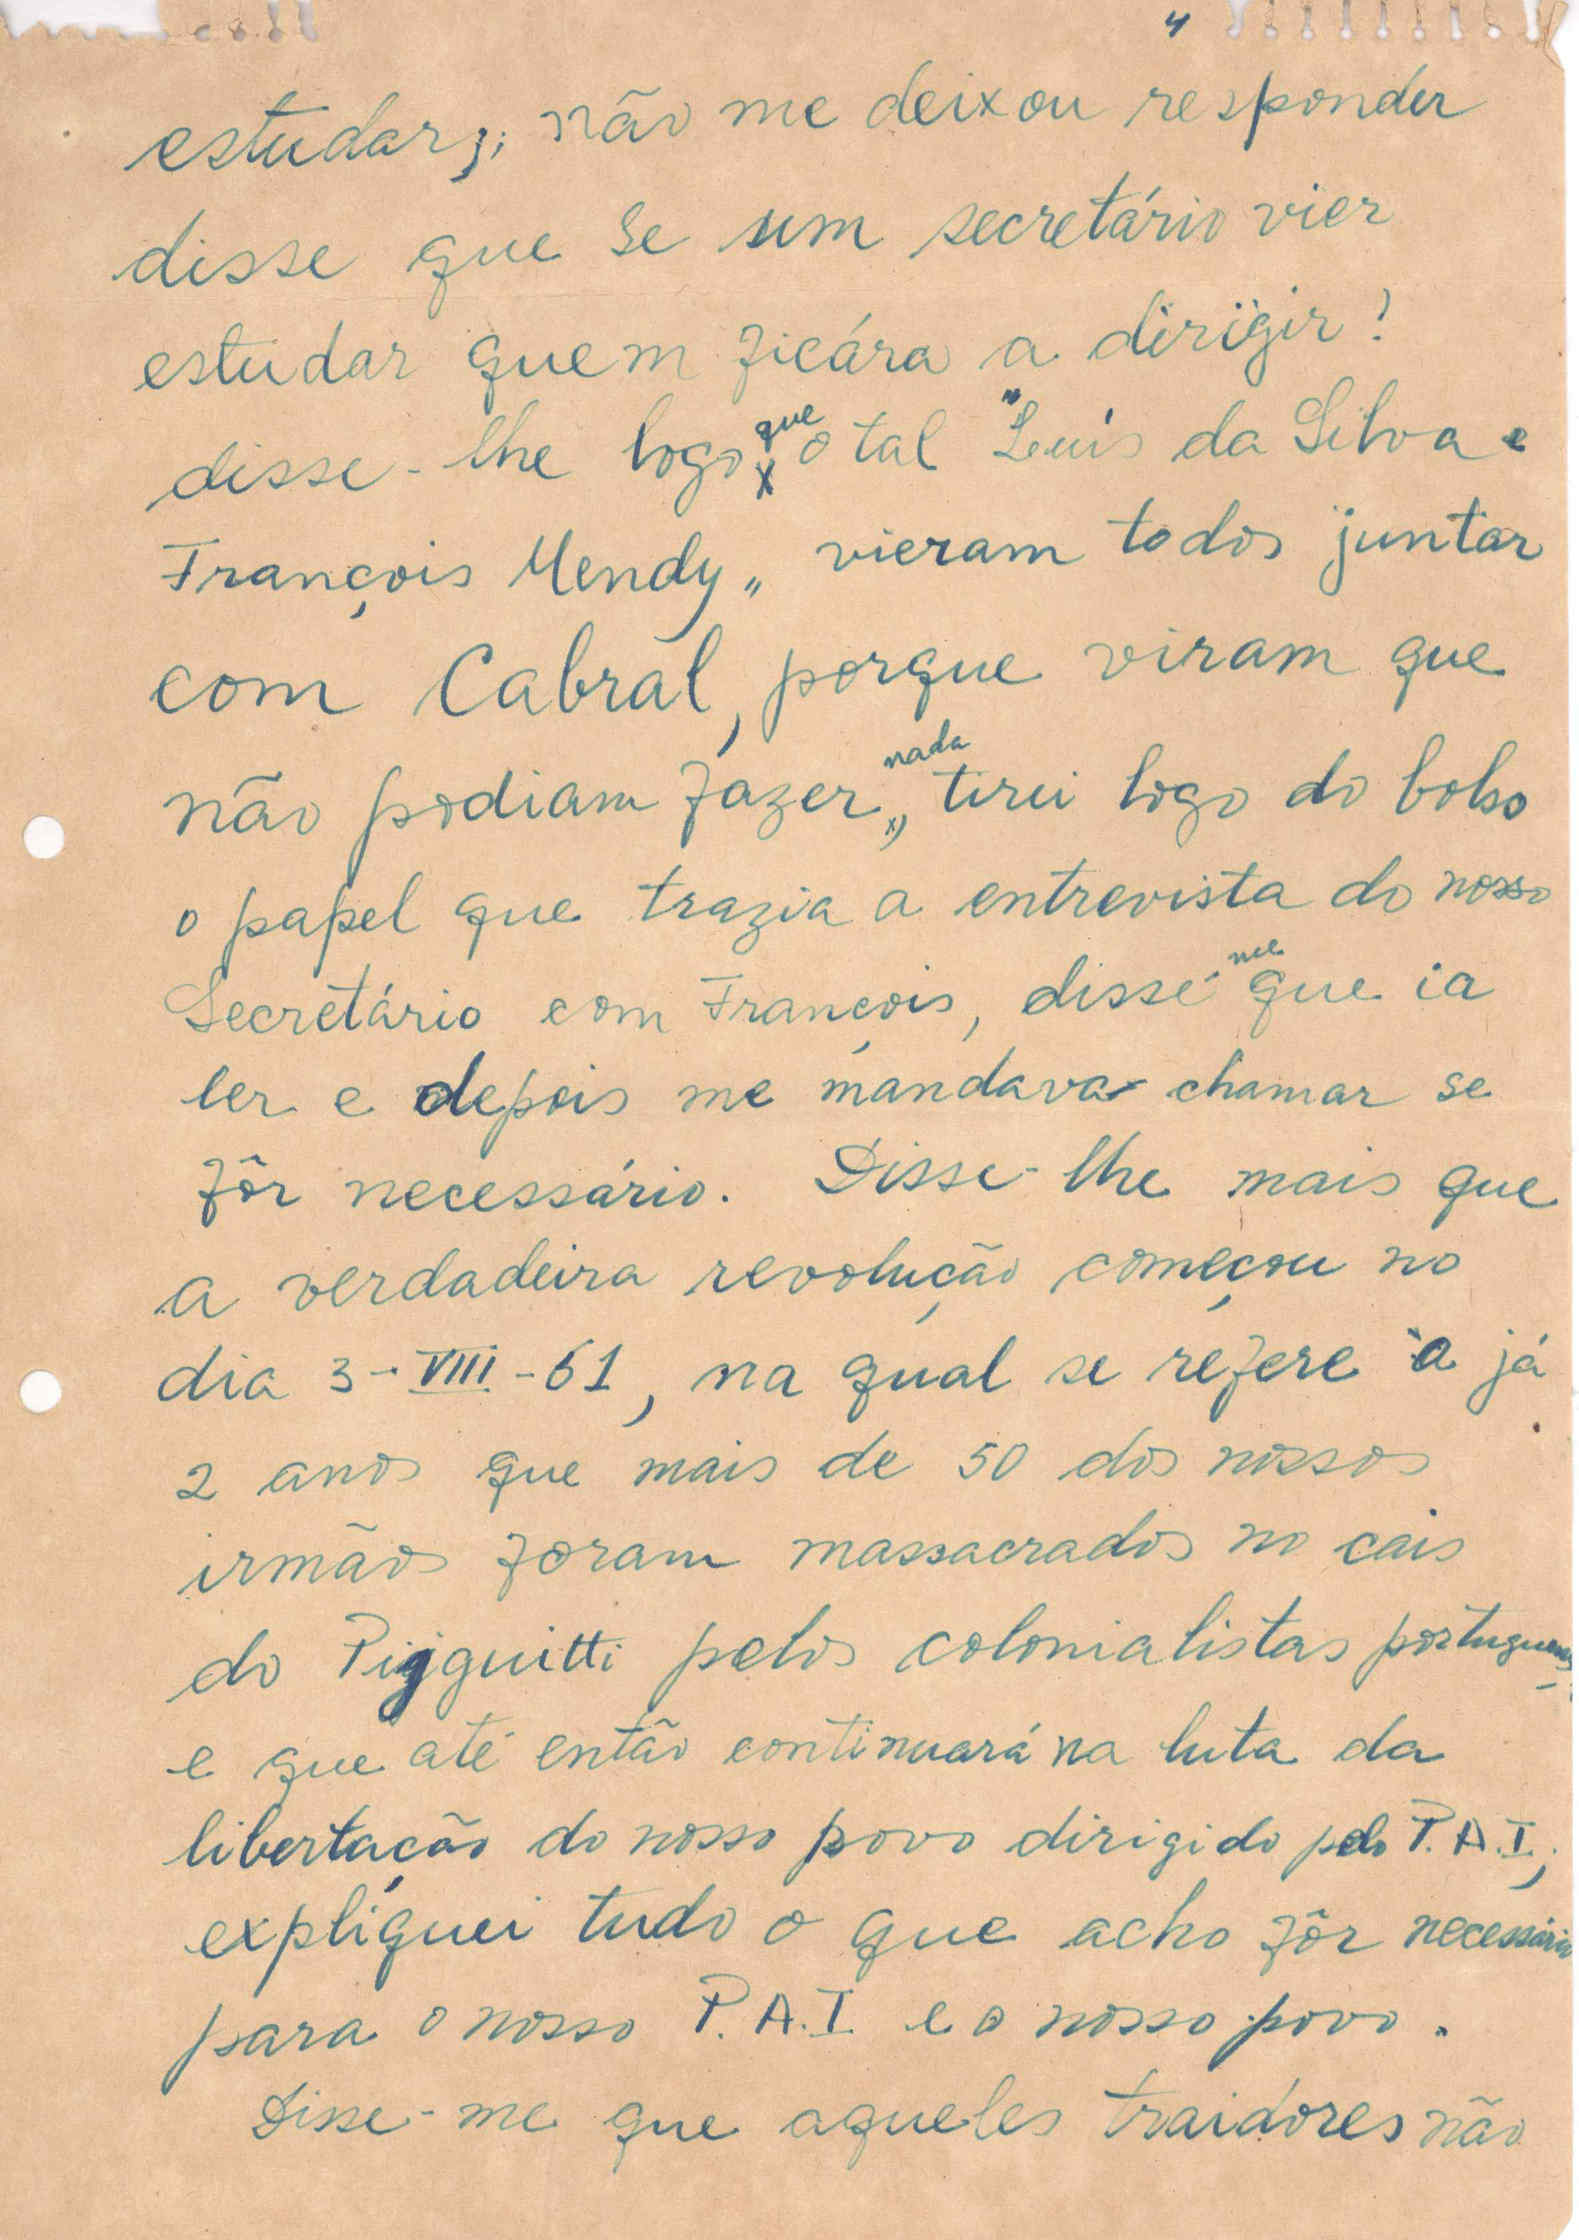 4
estudar; não me deixou responder
disse que se um secretário vier
estudar quem ficára a dirigir!
disse-lhe logo que o tal "Luís da Silva e
François Mendy" vieram todos juntar
com Cabral, porque viram que
não podiam fazer nada, tirei logo do bolso
o papel que trazia a entrevista do nosso
Secretário com François, disse-me que ia
ler e depois me mandava chamar se
fôr necessário. Disse-lhe mais que
a verdadeira revolução começou no
dia 3-VIII-61, na qual se refere à já
2 anos que mais de 50 dos nossos
irmãos foram massacrados no cais
do Pigguitti pelos colonialistas portugueses
e que até então continuará na luta da
libertação do nosso povo dirigido pelo P.A.I.;
expliquei tudo o que acho fôr necessário
para o nosso P.A.I e o nosso povo.
Disse-me que aqueles traidores não